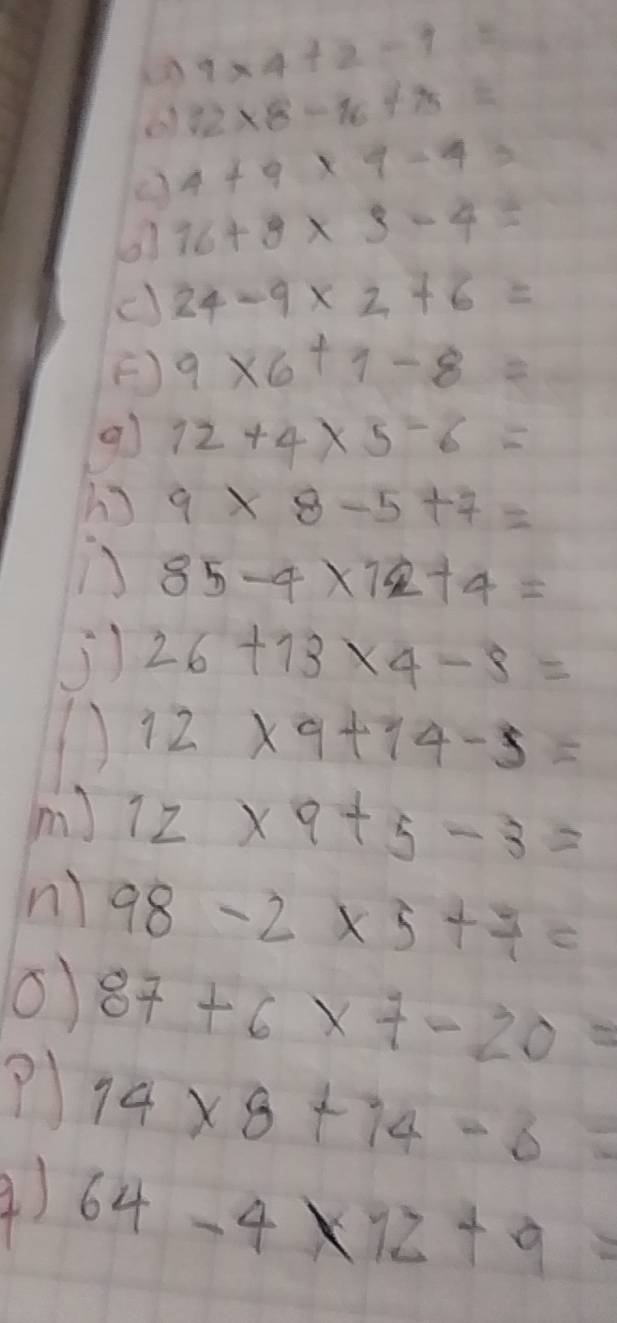 9 x 4 + 2 - 1 =
12 x 8 - 16 + 15 =
c) 4 + 9 x 9 - 4 =
16 + 8 x 3 - 4 =
c) 24 - 9 x 2 + 6 =
F) 9 x 6 + 1 - 8 =
g) 12 + 4 x 5 - 6 =
h) 9 x 8 - 5 + 7 =
i) 85 - 4 x 12 + 4 =
j) 26 + 13 x 4 - 3 =
l) 12 x 9 + 14 - 5 =
m) 12 x 9 + 5 - 3 =
n) 98 - 2 x 5 + 7 =
o) 87 + 6 x 7 - 20 =
p) 14 x 8 + 14 - 6 =
q) 64 - 4 x 12 + 9 =